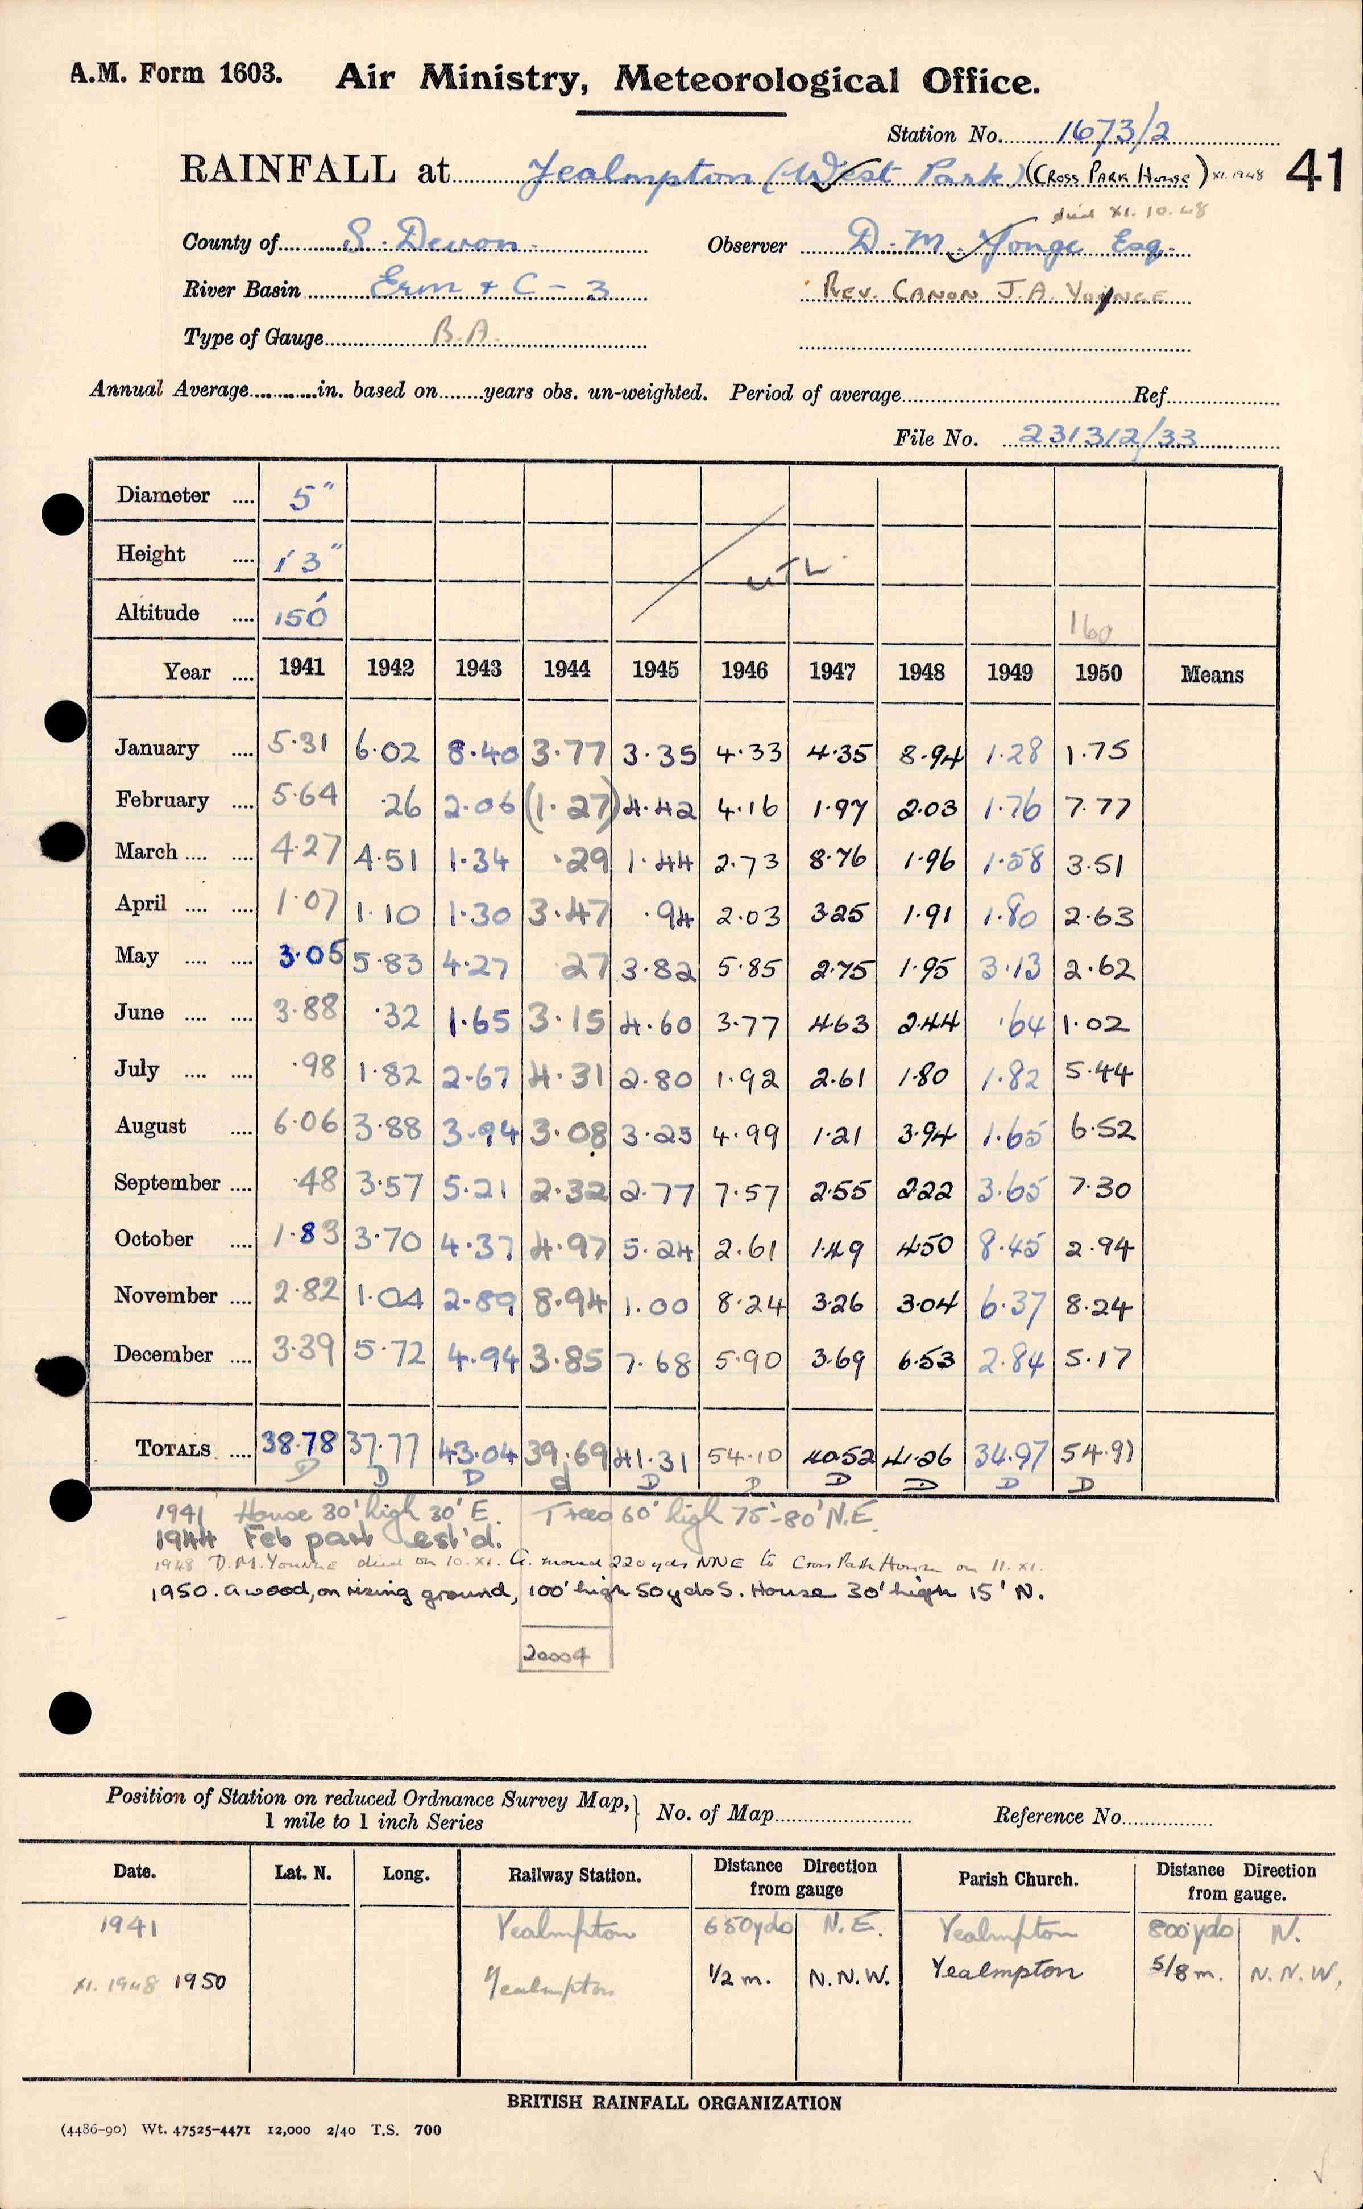 A.M. Form 1603. Air Ministry, Meteorological Office.
Station No. 1673/2
RAINFALL at Yealmpton (West Park) (Cross Park House) XI.1948 41
died XI.10.48
County of S. Devon. Observer D. M. Yonge Esq.
River Basin Erm & C - 3 Rev. Canon J.A. Yonge
Type of Gauge B.A.
Annual Average in. based on years obs. un-weighted. Period of average Ref
File No. 2313/2/33
Diameter .... 5"
Height .... 1' 3"
Altitude .... 150' 160
Year .... 1941 1942 1943 1944 1945 1946 1947 1948 1949 1950 Means
January .... 5.31 6.02 8.40 3.77 3.35 4.33 4.35 8.94 1.28 1.75
February .... 5.64 .26 2.06 (1.27) 4.42 4.16 1.97 2.03 1.76 7.77
March .... .... 4.27 4.51 1.34 .29 1.44 2.73 8.76 1.96 1.58 3.51
April .... .... 1.07 1.10 1.30 3.47 .94 2.03 3.25 1.91 1.80 2.63
May .... .... 3.05 5.83 4.27 .27 3.82 5.85 2.75 1.95 3.13 2.62
June .... .... 3.88 .32 1.65 3.15 4.60 3.77 4.63 2.44 .64 1.02
July .... .... .98 1.82 2.67 4.31 2.80 1.92 2.61 1.80 1.82 5.44
August .... 6.06 3.88 3.94 3.08 3.25 4.99 1.21 3.94 1.65 6.52
September .... .48 3.57 5.21 2.32 2.77 7.57 2.55 2.22 3.65 7.30
October .... 1.83 3.70 4.37 4.97 5.24 2.61 1.49 4.50 8.45 2.94
November .... 2.82 1.04 2.89 8.94 1.00 8.24 3.26 3.04 6.37 8.24
December .... 3.39 5.72 4.94 3.85 7.68 5.90 3.69 6.53 2.84 5.17
TOTALS .... 38.78 37.77 43.04 39.69 41.31 54.10 40.52 41.26 34.97 54.91
D D D d D D D D D D
1941 House 30' high 30' E. Trees 60' high 75'-80' N.E.
1944 Feb part est'd.
1948 D.M. Yonge died on 10.XI. G. moved 220 yds NNE to Cross Park House on 11.XI.
1950. a wood, on rising ground, 100' high 50 yds S. House 30' high 15' N.
20004
Position of Station on reduced Ordnance Survey Map, 1 mile to 1 inch Series No. of Map Reference No.
Date. Lat. N. Long. Railway Station. Distance Direction from gauge Parish Church. Distance Direction from gauge.
1941 Yealmpton 650 yds N.E. Yealmpton 800 yds N.
XI. 1948 1950 Yealmpton 1/2 m. N.N.W. Yealmpton 5/8 m. N.N.W.
BRITISH RAINFALL ORGANIZATION
(4486-90) Wt. 47525-4471 12,000 2/40 T.S. 700